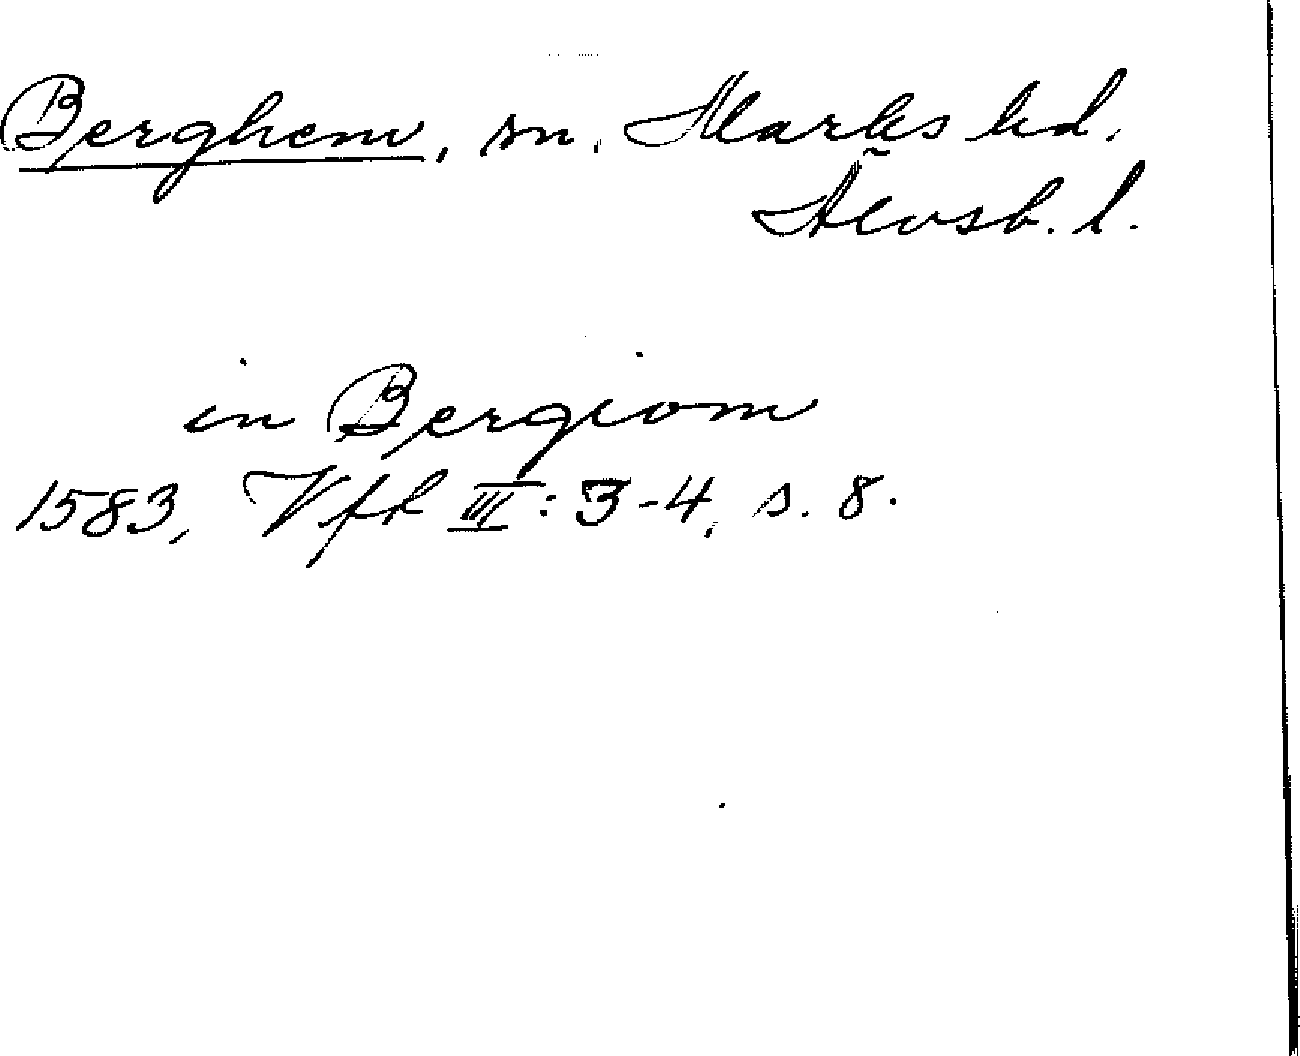 Berghem, sn. Marks hd.
Älvsb. l.
in Bergiom
1583, Vfk III: 3-4, s. 8.